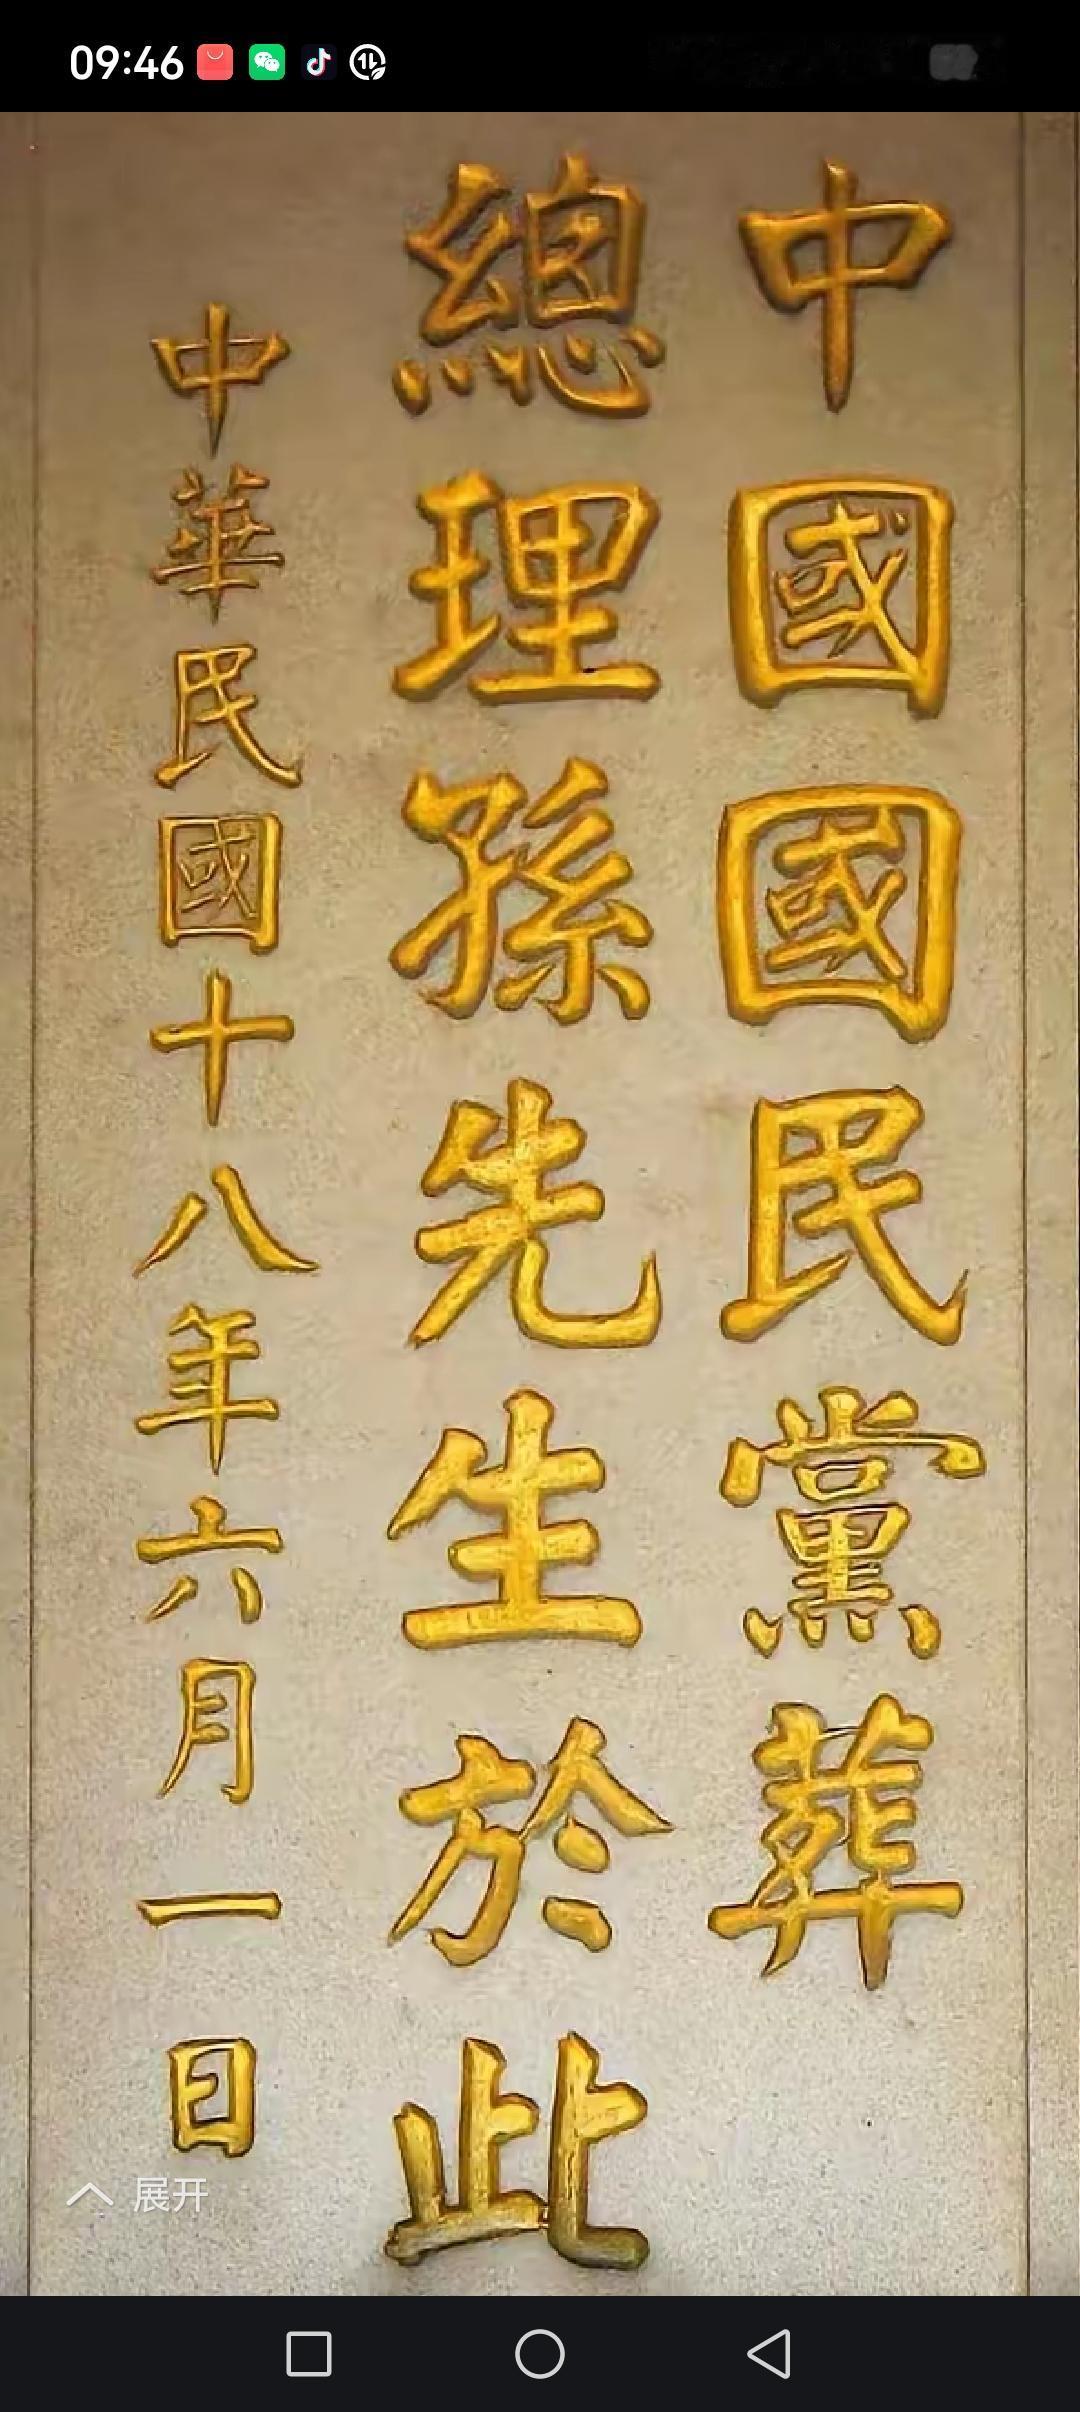 09:46
中國國民黨葬
總理孫先生於此
中華民國十八年六月一日
展开